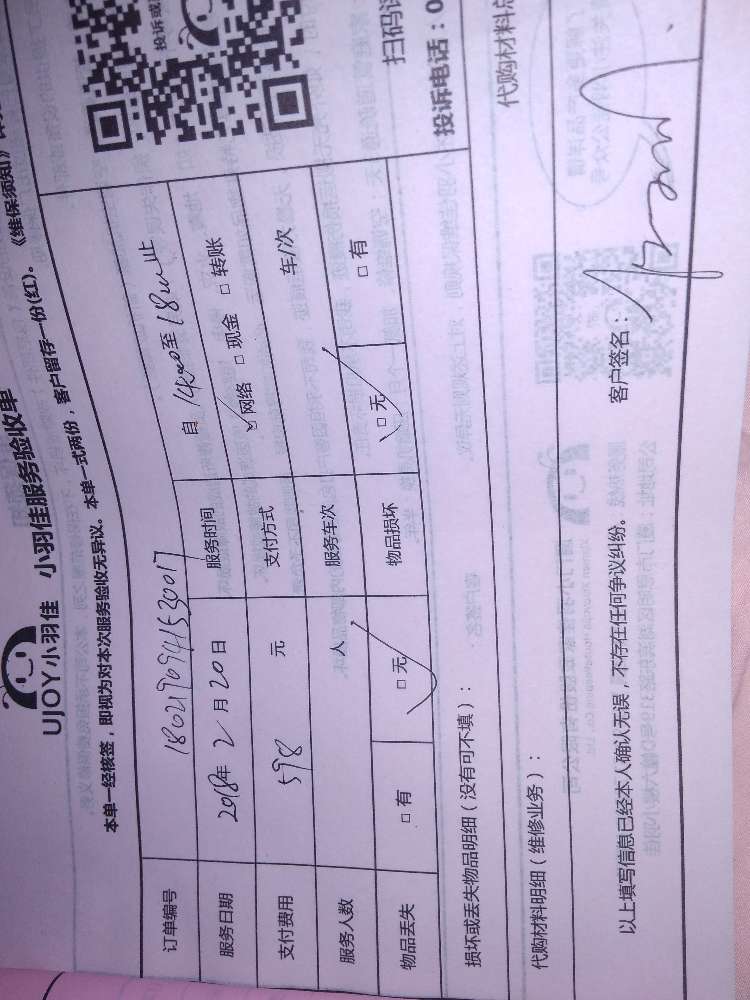 UJOY小羽佳 小羽佳服务验收单
本单一经核签，即视为对本次服务验收无异议。本单一式两份，客户留存一份(红)。《维保须知》
订单编号 1802190941530017
服务日期 2018年2月20日 服务时间 自14:00至18:00止
支付费用 598元 支付方式 ☑网络 □现金 □转账
服务人数 人 服务车次 车/次
物品丢失 □有 □无 物品损坏 □无 □有
损坏或丢失物品明细（没有可不填）：
代购材料明细（维修业务）： 代购材料总
以上填写信息已经本人确认无误，不存在任何争议纠纷。 客户签名：
投诉或
扫码
投诉电话：0